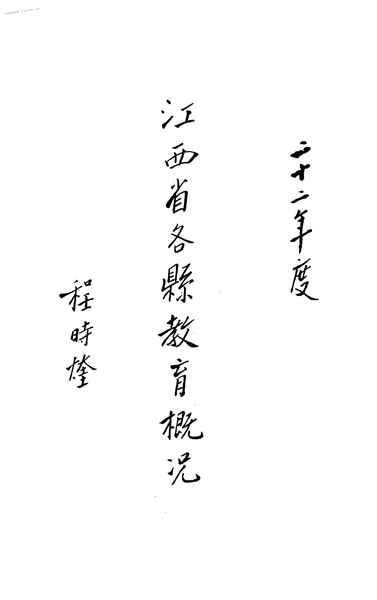 二十二年度
江西省各縣教育概况
程時煃